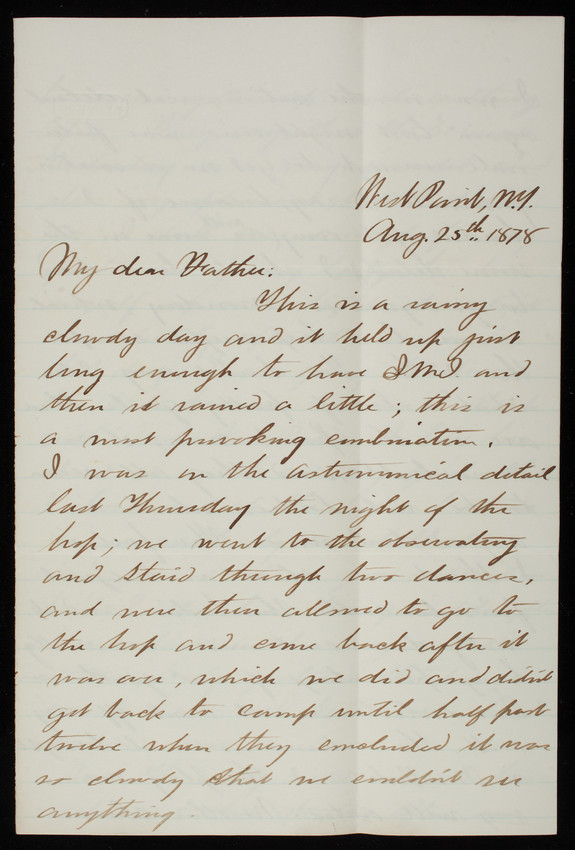 West Point, N.Y.
Aug. 25th 1878
My dear Father:
This is a rainy
cloudy day and it held up just
long enough to have I M I and
then it rained a little; this is
a most provoking combination.
I was on the astronomical detail
last Thursday the night of the
hop; we went to the observatory
and staid through two dances,
and were then allowed to go to
the hop and come back after it
was over, which we did and didn't
get back to camp until half past
twelve when they concluded it was
so cloudy that we couldn't see
anything.